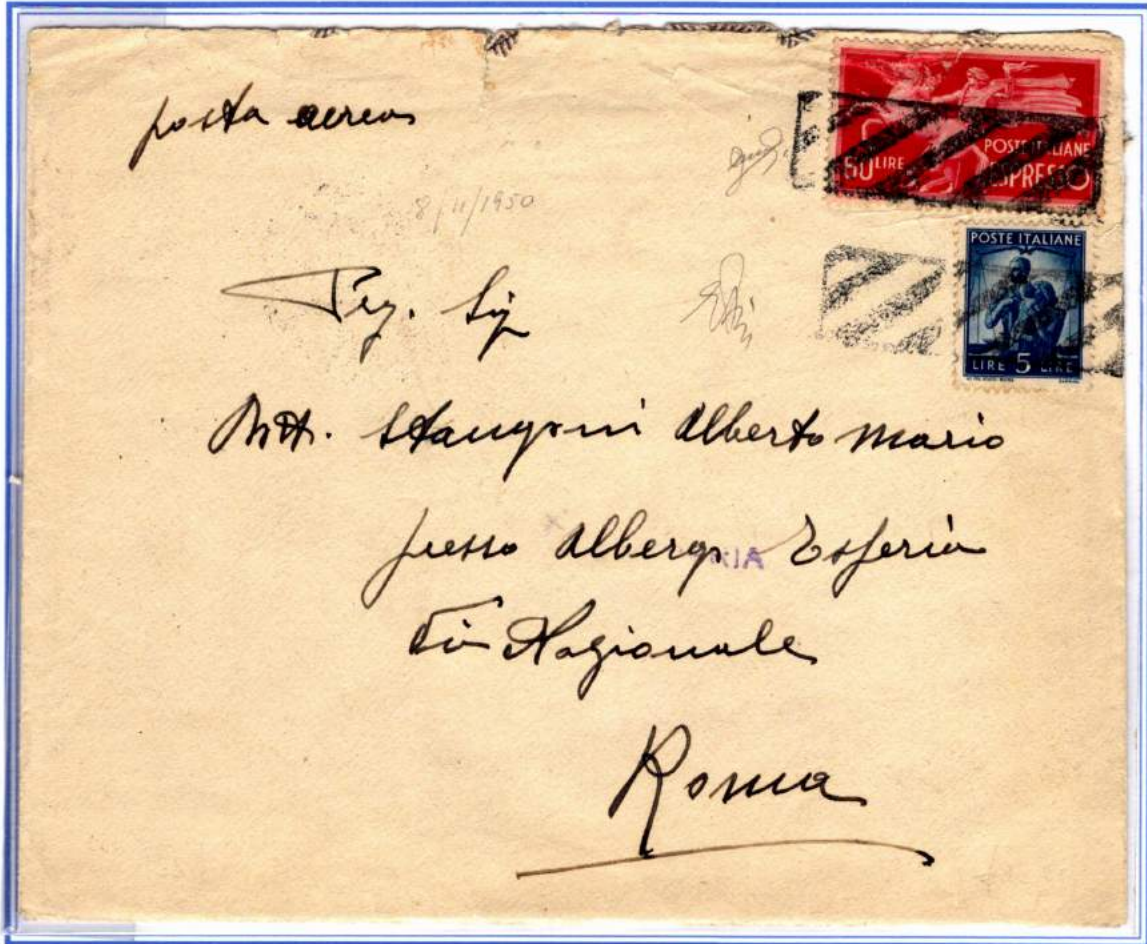 posta aerea
8/11/1950
60 LIRE
POSTE ITALIANE
ESPRESSO
POSTE ITALIANE
LIRE 5 LIRE
Preg. Sig
Dott. Stangoni Alberto Mario
presso Albergo Esperia
Via Nazionale
Roma